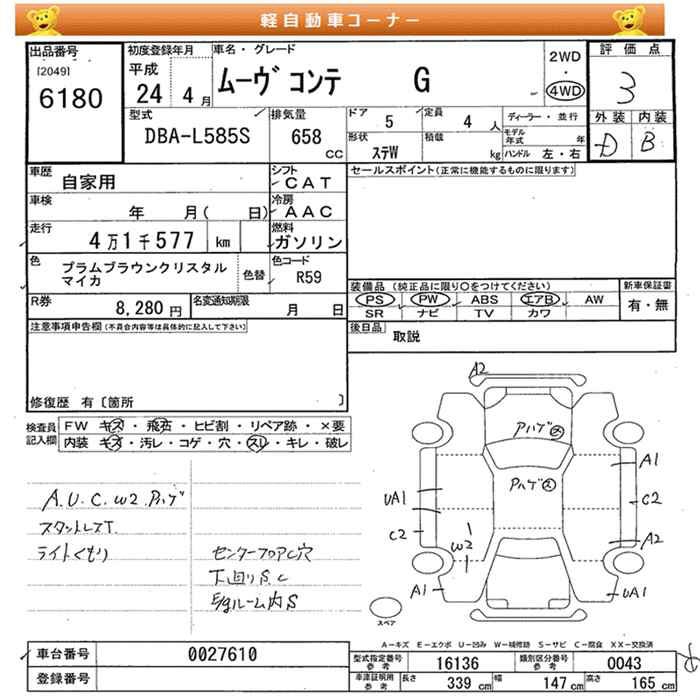 軽自動車コーナー
出品番号
[2049]
6180
初度登録年月
平成
24 4月
車名・グレード
ムーヴ コンテ G
2WD
・
4WD
評価点
3
型式
DBA-L585S
排気量
658
CC
ドア
5
定員
4 人
形状
ステW
積載
kg
ディーラー・並行
モデル年式 年
ハンドル 左・右
外装 内装
D B
車歴
自家用
シフト
CAT
セールスポイント(正常に機能するものに限ります)
車検
年 月( 日)
冷房
AAC
走行
4万1千577 km
燃料
ガソリン
色
プラムブラウンクリスタル
マイカ
色替
色コード
R59
装備品 (純正品に限り○をつけてください)
PS PW ABS エアB AW
SR ナビ TV カワ
新車保証書
有・無
R券
8,280 円
名変通知期限
月 日
後日品
取説
注意事項申告欄(不具合内容等は具体的に記入して下さい)
修復歴 有〔箇所 〕
検査員
記入欄
FW キズ・飛石・ヒビ割・リペア跡・×要
内装 キズ・汚レ・コゲ・穴・スレ・キレ・破レ
A.U.C.W2.アハゲ
スタットレスT.
ライトくもり
センターフロアC穴
下回りS.C
E/gルーム内S
A2
アハゲ
アハゲ
A1
UA1
C2
C2
W2
A2
A1
UA1
スペア
A-キズ E-エクボ U-凹み W-補修跡 S-サビ C-腐食 XX-交換済
車台番号
0027610
登録番号
型式指定番号
参考
16136
類別区分番号
参考
0043
車庫証明用
参考
長さ
339 cm
幅
147 cm
高さ
165 cm